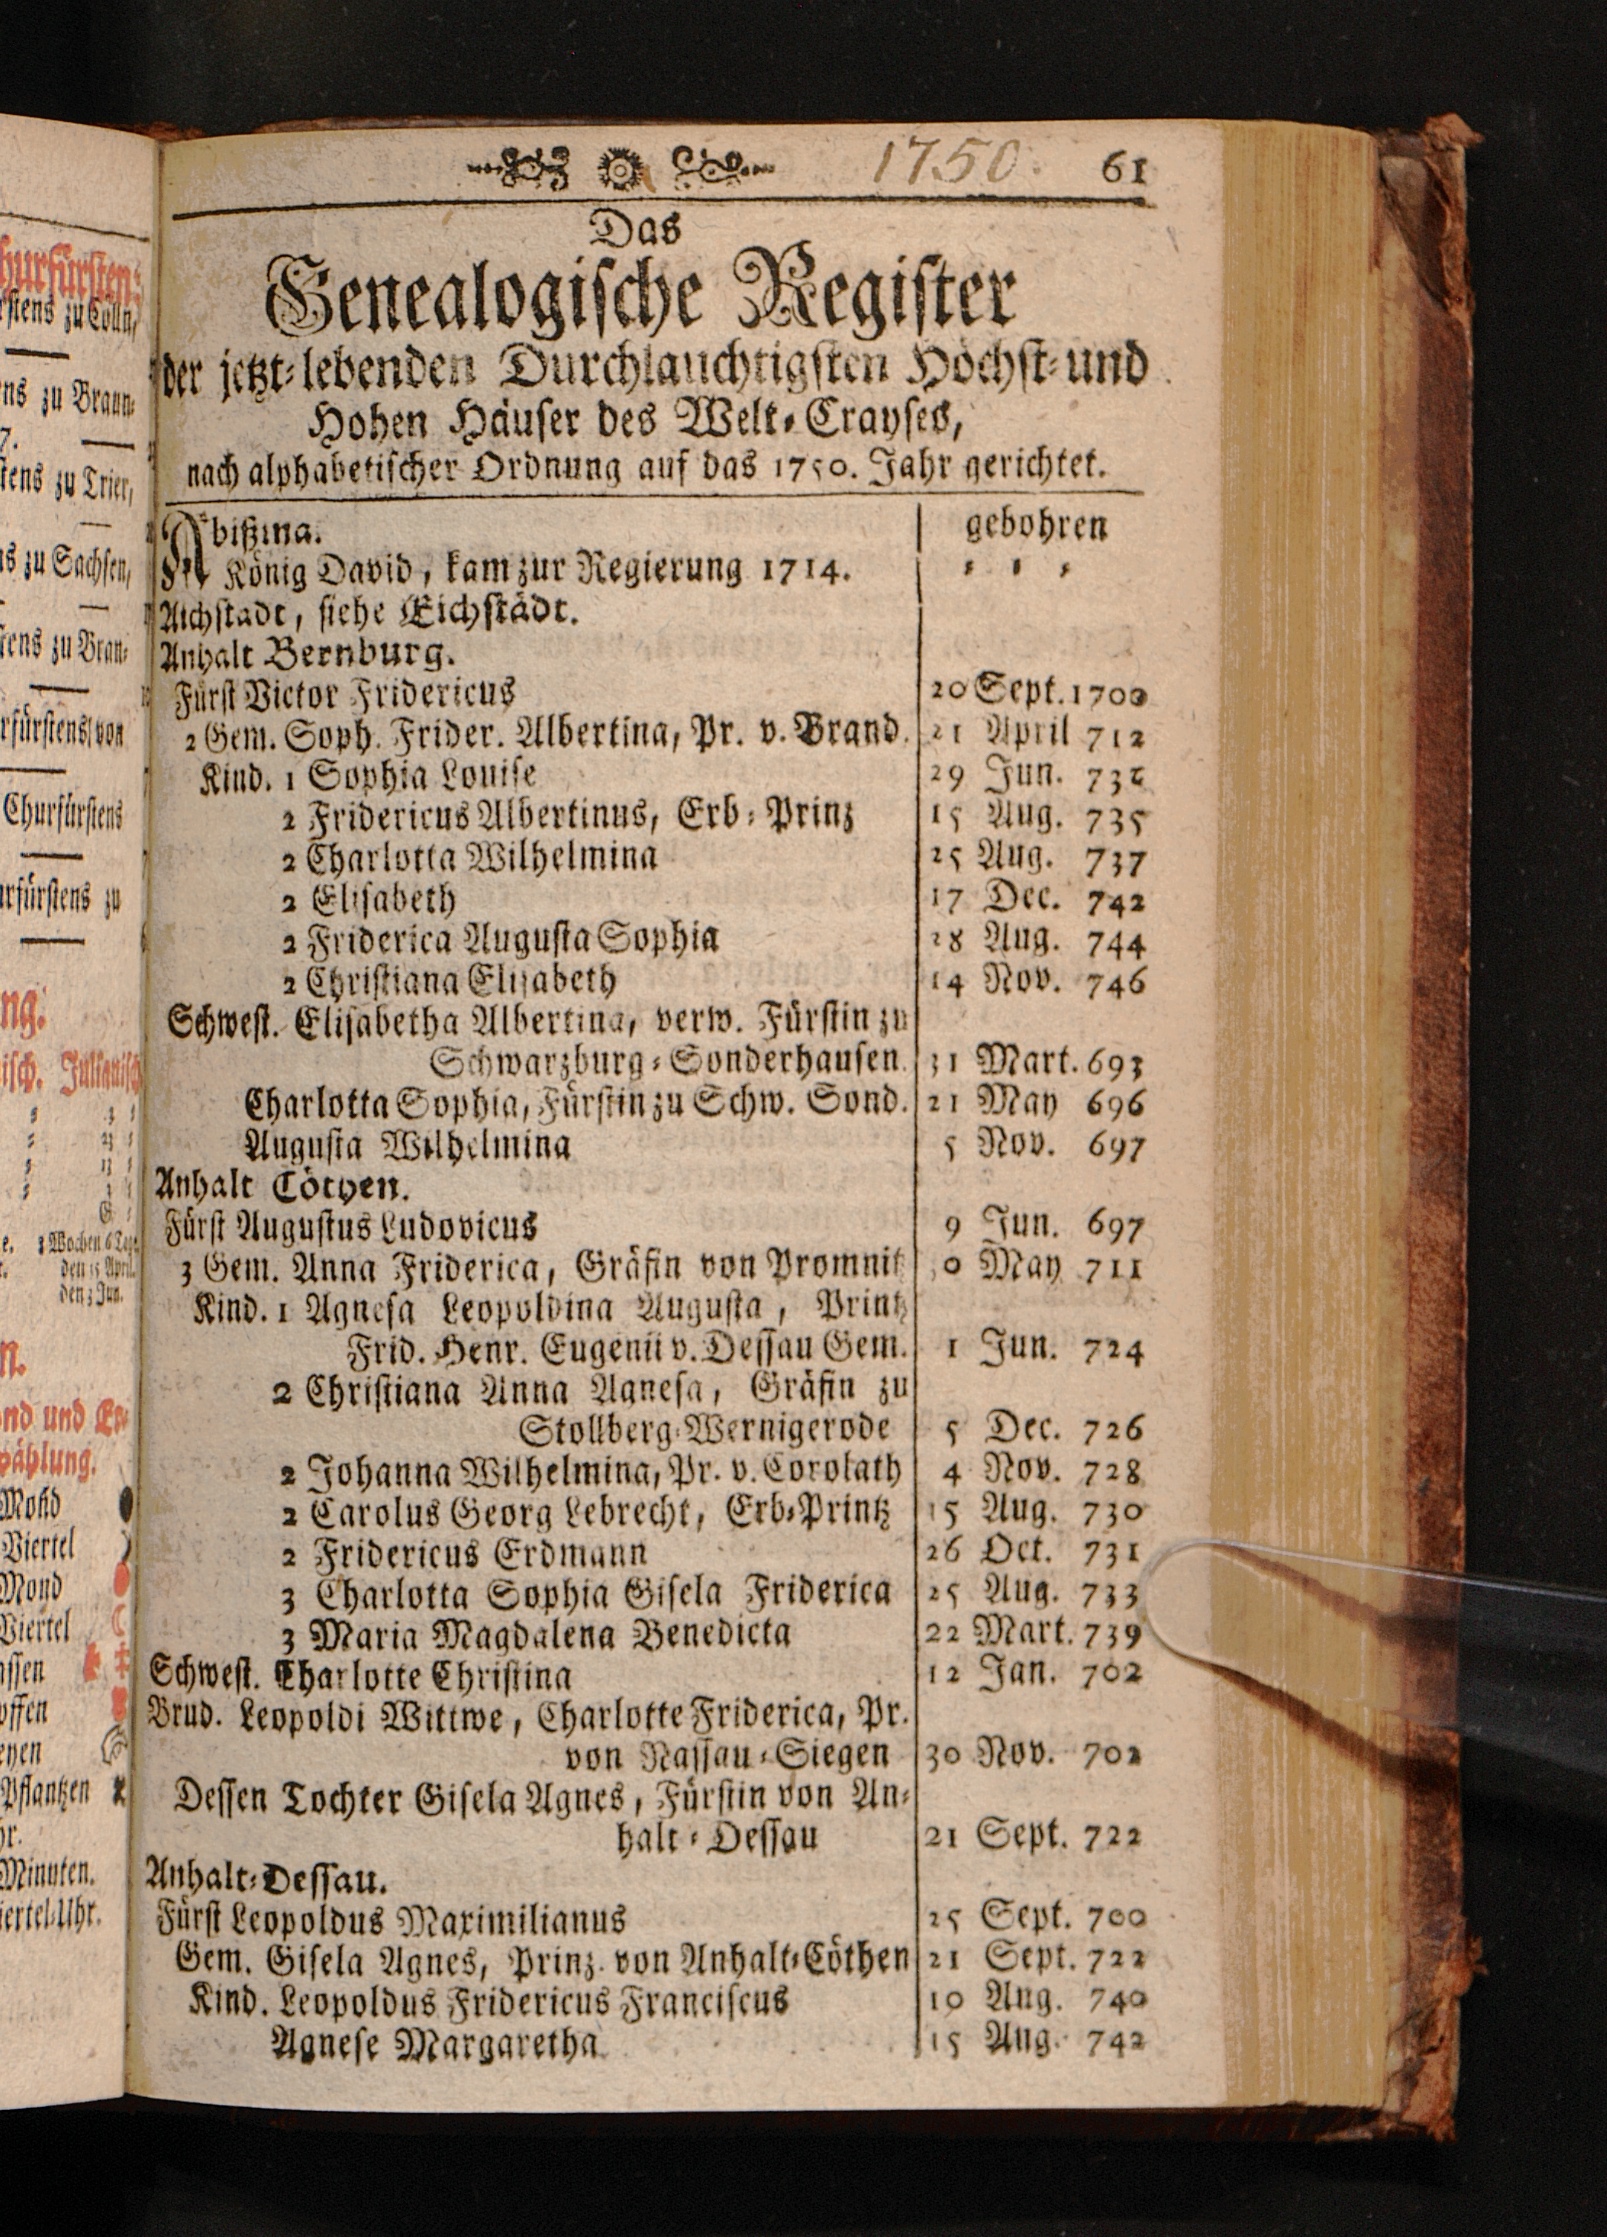 1750. 61
Das
Genealogische Register
der jetzt-lebenden Durchlauchtigsten Höchst- und
Hohen Häuser des Welt-Crayses,
nach alphabetischer Ordnung auf das 1750. Jahr gerichtet.
Abißina. gebohren
König David, kam zur Regierung 1714. - - -
Aichstädt, siehe Eichstädt.
Anhalt Bernburg.
Fürst Victor Fridericus 20 Sept. 1700
2 Gem. Soph. Frider. Albertina, Pr. v. Brand. 21 April 712
Kind. 1 Sophia Louise 29 Jun.
2 Fridericus Albertinus, Erb-Prinz 15 Aug. 735
2 Charlotta Wilhelmina 25 Aug. 737
2 Elisabeth 17 Dec. 742
2 Friderica Augusta Sophia 28 Aug. 744
2 Christiana Elisabeth 14 Nov. 746
Schwest. Elisabetha Albertina, verw. Fürstin zu
Schwarzburg-Sonderhausen. 31 Mart. 693
Charlotta Sophia, Fürstin zu Schw. Sond. 21 May 696
Augusta Wilhelmina 5 Nov. 697
Anhalt Cöthen.
Fürst Augustus Ludovicus 9 Jun. 697
3 Gem. Anna Friderica, Gräfin von Promnitz 30 May 711
Kind. 1 Agnesa Leopoldina Augusta, Printz
Frid. Henr. Eugenii v. Dessau Gem. 1 Jun. 724
2 Christiana Anna Agnesa, Gräfin zu
Stollberg-Wernigerode 5 Dec. 726
2 Johanna Wilhelmina, Pr. v. Corolath 4 Nov. 728
2 Carolus Georg Lebrecht, Erb-Printz 15 Aug. 730
2 Fridericus Erdmann 26 Oct. 731
3 Charlotta Sophia Gisela Friderica 25 Aug. 733
3 Maria Magdalena Benedicta 22 Mart. 739
Schwest. Charlotte Christina 12 Jan. 702
Brud. Leopoldi Wittwe, Charlotte Friderica, Pr.
von Nassau-Siegen 30 Nov. 702
Dessen Tochter Gisela Agnes, Fürstin von An-
halt-Dessau 21 Sept. 722
Anhalt-Dessau.
Fürst Leopoldus Maximilianus 25 Sept. 700
Gem. Gisela Agnes, Prinz. von Anhalt-Cöthen 21 Sept. 722
Kind. Leopoldus Fridericus Franciscus 10 Aug. 740
Agnese Margaretha 15 Aug. 742
hurfürsten:
rstens zu Cölln,
ens zu Braun-
7.
stens zu Trier,
ns zu Sachsen,
stens zu Bran-
rfürstens von
Churfürstens
urfürstens zu
ng:
isch. Julianisch
3 Wochen 6 Tage
den 15 April.
den 3 Jun.
n.
ond und Er-
wählung.
Mond
Viertel
Mond
Viertel
assen
offen
eyen
Pflantzen
hr.
Minuten.
iertel-Uhr.